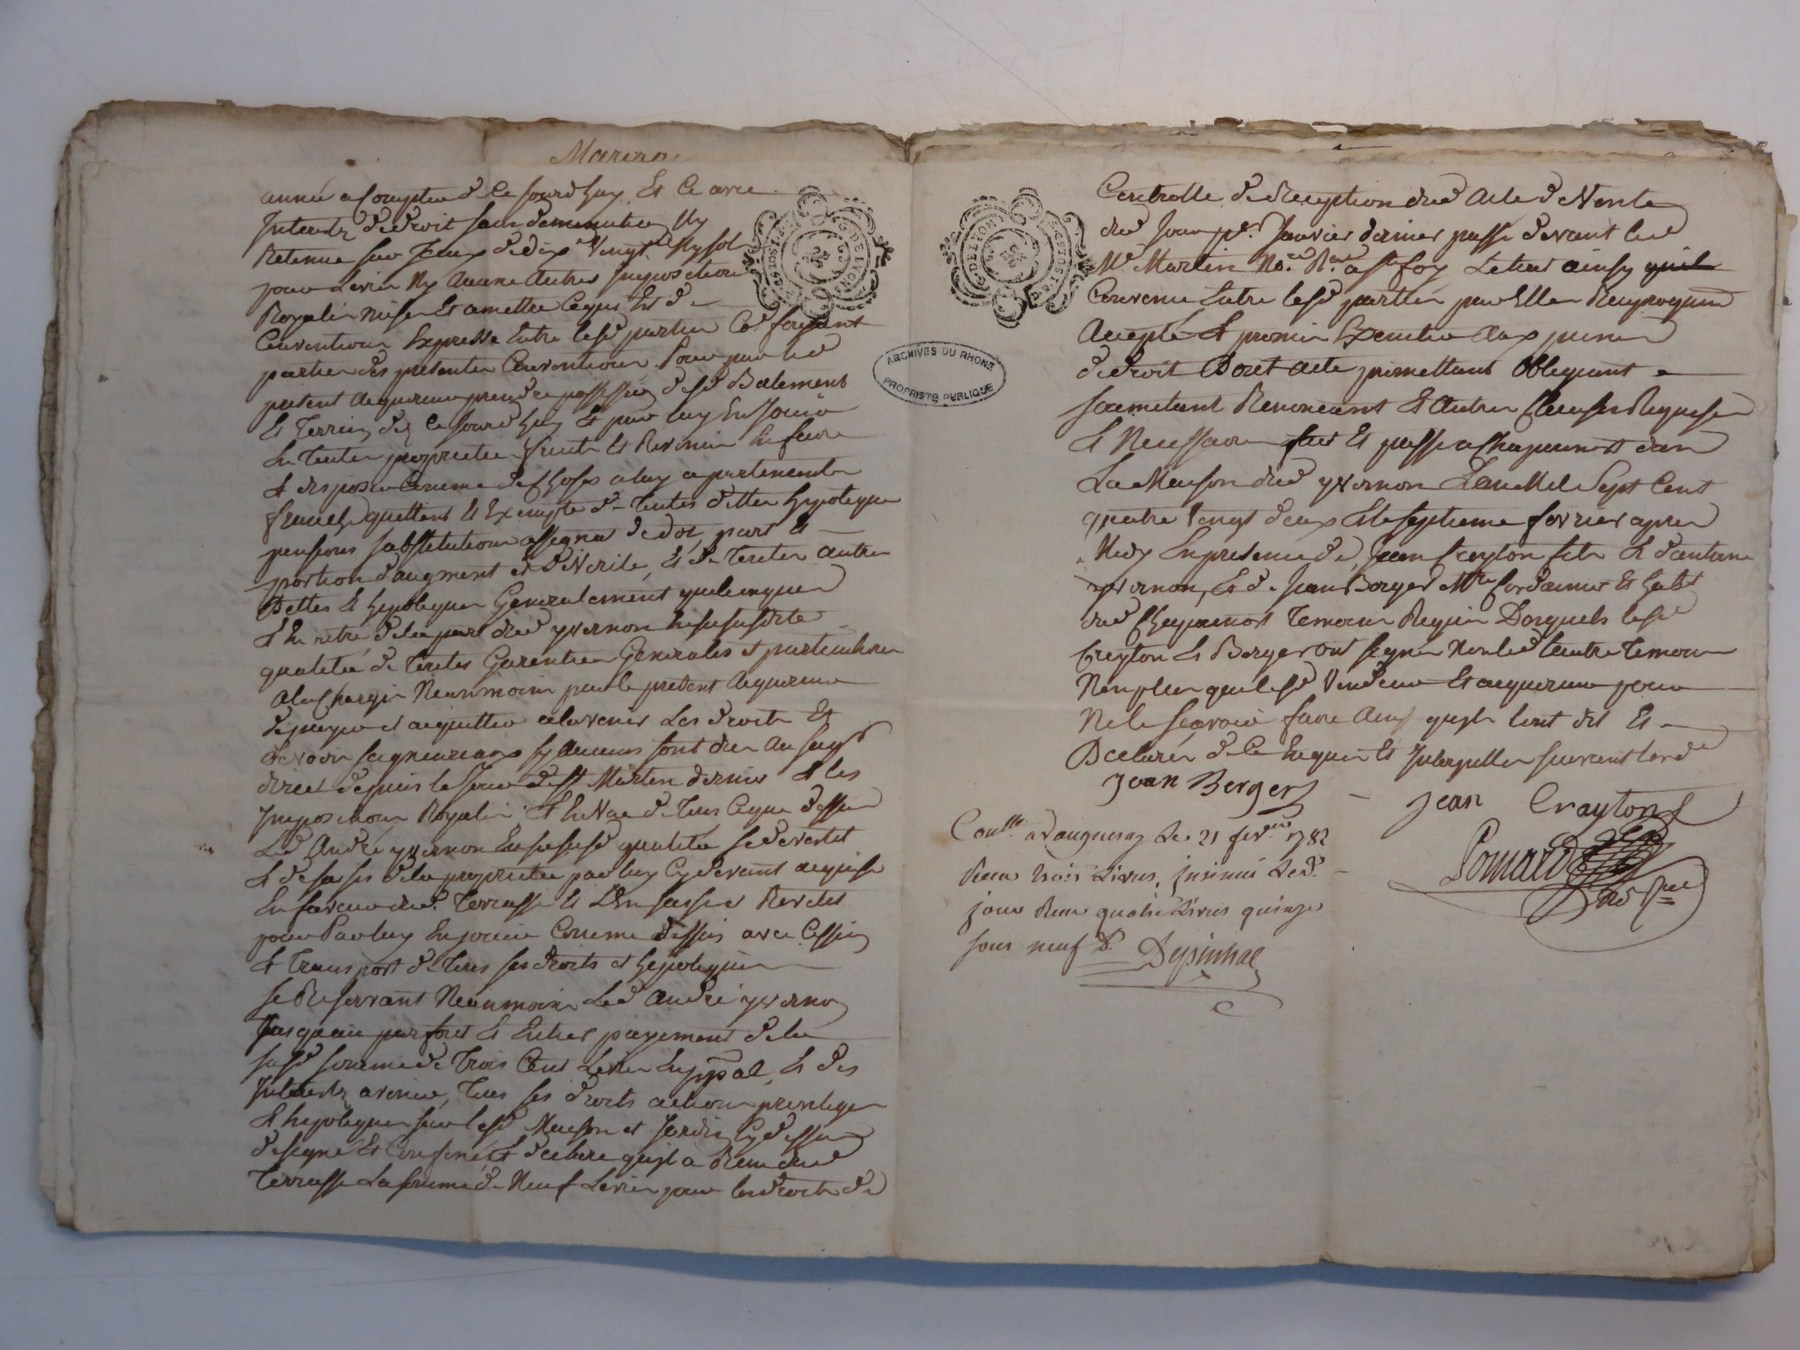 année a Compter de ce Jourdhuy, Et ce avec
Interets de droit sans diminution Ny
Retenue sur Iceux de dix.es Vingt.es Ny sol
pour Livre Ny Aucune Autres Impositions
Royalles mises Et a mettre Cequi Est de
Convention Expresse Entre lesd parties Ce faisant
partie des presentes Conventions. Pour par led
present acquereur prendre possession desd Batiment
Et Terrein des ce Jourdhuy Et par luy En Jouir
En toutes proprietés fruits Et Revenus En faire
Et disposer Comme de Choses a luy apartenantes
franches quittes Et Exempte de Toutes dettes hypoteques
pensions substitutions assignat de dot, part Et
portion d'augment et de Virile, Et de Toutes autres
Dettes Et hypoteques Generalement quelconques
Et En outre de la part dud yvernon En sa susdite
qualité de Toutes Garenties Generales et particulieres
a la Charge Neanmoins par le present acquereur
de payer et acquitter a lavenir Les droits Et
devoirs seigneuriaux sy Aucuns sont dus Au seigr
direct depuis la fete de St Martin dernier Et les
Impositions Royalles. Et En Vue de Tout Ceque dessus
Led André yvernon En sa susd qualité se devestit
Et desaisit de la proprieté par luy Cy devant acquise
En faveur dud. Terrasse Et L'En saisit Et Revetit
pour Par luy En jouir Comme dessus avec Cession
Et Transport de Tous ses droits et hypoteques
se Reservant Neanmoins Led André yvernon
Jusqu'au parfait Et Entier payement de la
susd somme de Trois Cent Livres En ppal, Et des
Interets a venir, Tous ses droits actions privileges
Et hypoteques sur lesd Maison et Jardin Cy dessus
designé Et Confinés Et declare quil a Recu dud
Terrasse La somme de Neuf Livres pour les droits de
Controlle de Reception dud Acte de Vente
dud Jour pr. Janvier dernier passé devant led
Me Martin No.re R.al a St foy Letout ainsy quil
Convenu Entre lesd parties par Elles Reciproquement
Accepté Et promis Executer aux peines
de droit Dont acte promettant Obligeant
soumettant Renonceant Et Autres Clauses Requises
Et Necessaires fait Et passé a Chaponost dans
La Maison dud yvernon L'an Mil Sept Cent
quatre Vingt deux Et le septieme fevrier apres
Midy En presence de Jean Crayton fils Et d'antoine
yvernon, Et de Jean Berger Mtre Cordonnier Et habt
dud Chaponost Temoins Requis Desquels lesd
Crayton Et Berger ont signé Non led L'autre Temoin
Non plus que lesd Vendeur Et acquereur pour
Ne le sçavoir faire Ainsy quils l'ont dit Et
Declaré de Ce Enquis Et Interpellés suivant lord.e
Jean Berger
Jean Crayton
Conlle a Vaugneray Le 21 fevrier 1782
Reçu trois Livres, insinué Led.
jour Reçu quatre Livres quinze
sous neuf D.
ARCHIVES DU RHONE
PROPRIÉTÉ PUBLIQUE